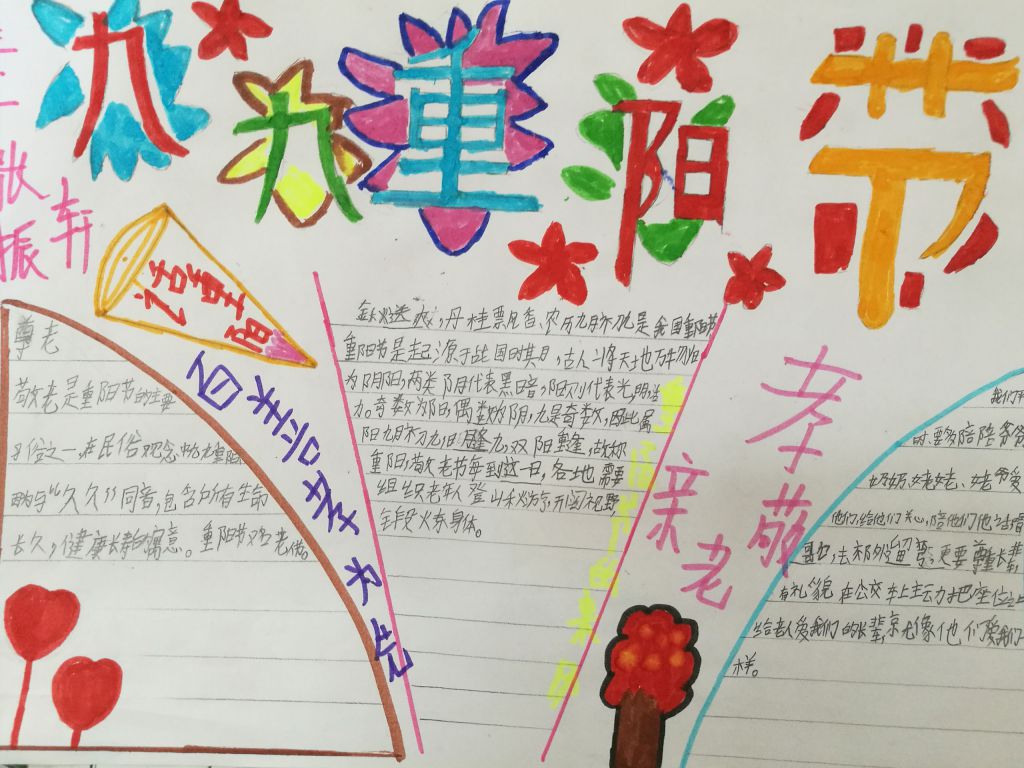 九九重阳节
张
振轩
话重阳
百善孝为先
孝敬
亲老
尊老
敬老是重阳节的主要
习俗之一,在民俗观念中九九重阳
因为与“久久”同音,包含有生命
长久,健康长寿的寓意。重阳节又名老人节。
金秋送爽,丹桂飘香、农历九月初九是我国重阳节
重阳节是起源于
为阴阳,两类阴代表黑暗,阳则代表光明活
力。奇数为阳偶数为阴,九是奇数,因此属
阳九月初九日月逢九,双阳重逢,故称
重阳,敬老节每到这一日,各地需要
组织老年人登山秋游,开阔视野
锻炼身体。
我们平
时要多陪陪爷爷
奶奶、姥姥、姥爷爱
他们,给他们关心,陪他们
去郊外遛弯,更要尊重长辈,
有礼貌 在公交车上主动把座位让
给老人爱我们的长辈,就像他们爱我们一
样。